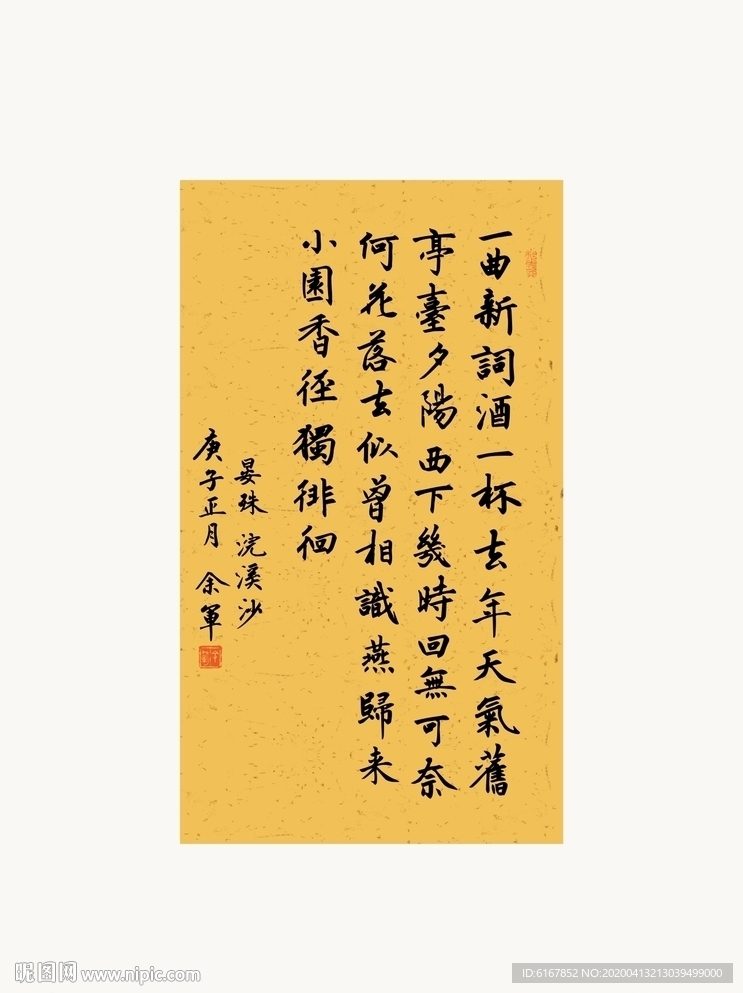 一曲新詞酒一杯去年天氣舊
亭臺夕陽西下幾時回無可奈
何花落去似曾相識燕歸来
小園香徑獨徘徊
晏殊 浣溪沙
庚子正月 余軍
昵图网 www.nipic.com
ID:6167852 NO:20200413213039499000